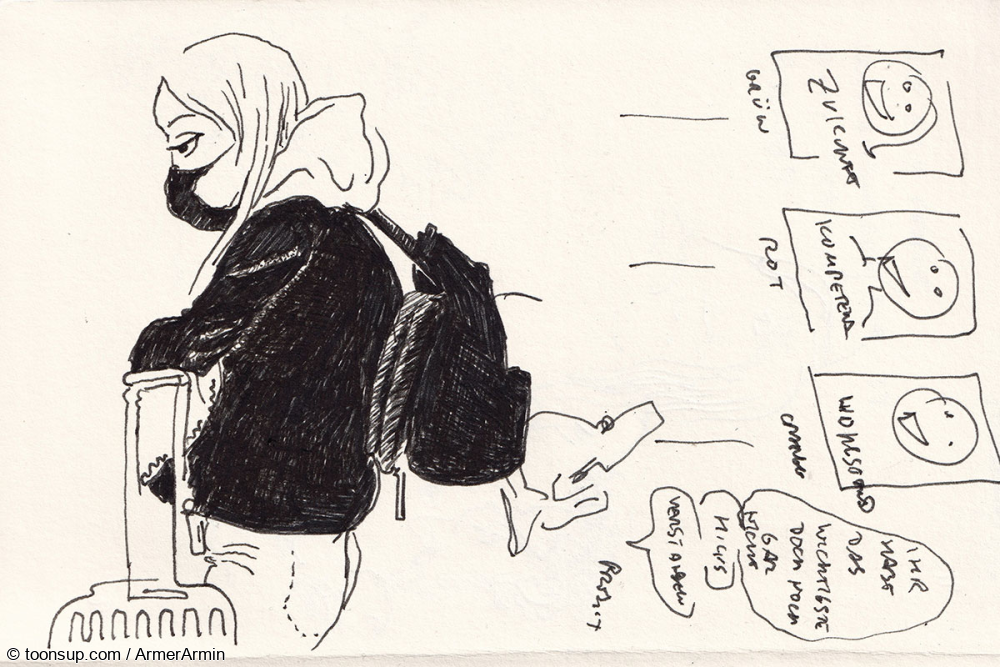 GRÜN
ZUKUNFT
ROT
KOMPETENZ
WOHLSTAND
IHR
HABT
DAS
WICHTIGSTE
DOCH NOCH
GAR
NICHT
HICKS
VERSTANDEN
PROSIT
© toonsup.com / ArmerArmin